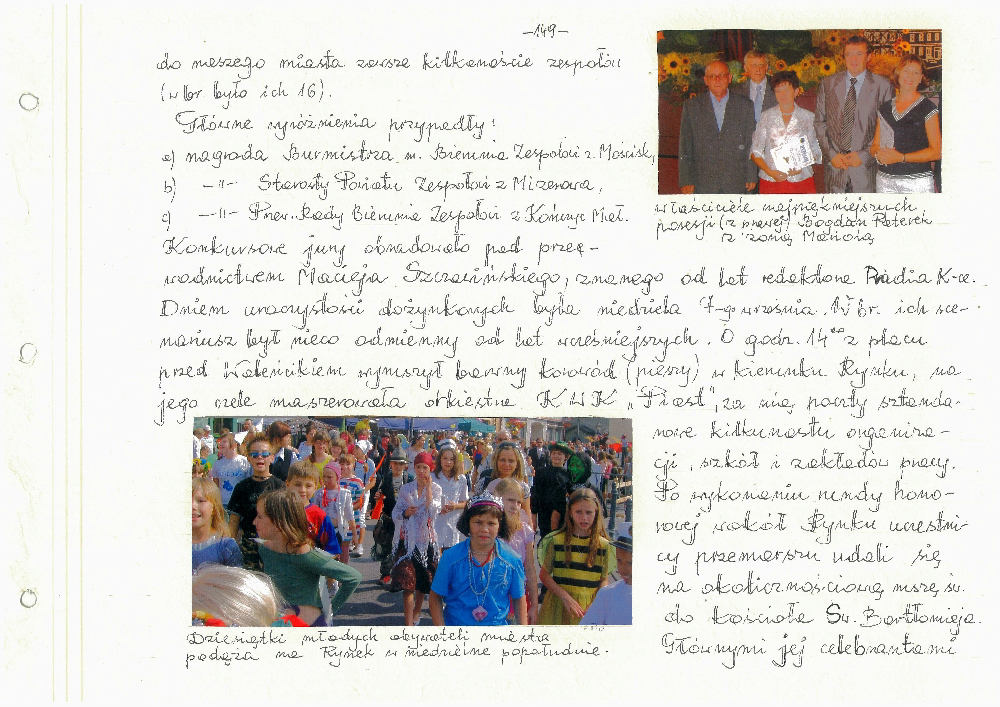 -149-
do naszego miasta zawsze kilkanaście zespołów
(w br było ich 16).
Główne wyróżnienia przypadły:
a) nagrada Burmistrza m. Bierunia Zespołowi z Mościsk,
b) -"- Starosty Powiatu Zespołowi z Mizerowa,
c) -"- Przew. Rady Bierunia Zespołowi z Kończyc Mał.
Konkursowe jury obradowało pod przew-
wodnictwem Macieja Szczawińskiego, znanego od lat redaktora Radia K-ce.
Dniem uroczystości dożynkowych była niedziela 7-go września. W br. ich sce-
nariusz był nieco odmienny od lat wcześniejszych. O godz. 14⁰⁰ z placu
przed Walencikiem wyruszył barwny korowód (pieszy) w kierunku Rynku, na
jego czele maszerowała orkiestra KWK "Piast", za nią poczty sztanda-
rowe kilkunastu organiza-
cji, szkół i zakładów pracy.
Po wykonaniu rundy hono-
rowej wokół Rynku uczestni-
cy przemarszu udali się
na okolicznościową mszę św.
do kościoła Św. Bartłomieja.
Głównymi jej celebrantami
właściciele najpiękniejszych
posesji (z prawej) Bogdan Paterek
z żoną Mariolą
Dziesiątki młodych obywateli miasta
podąża na Rynek w niedzielne popołudnie.